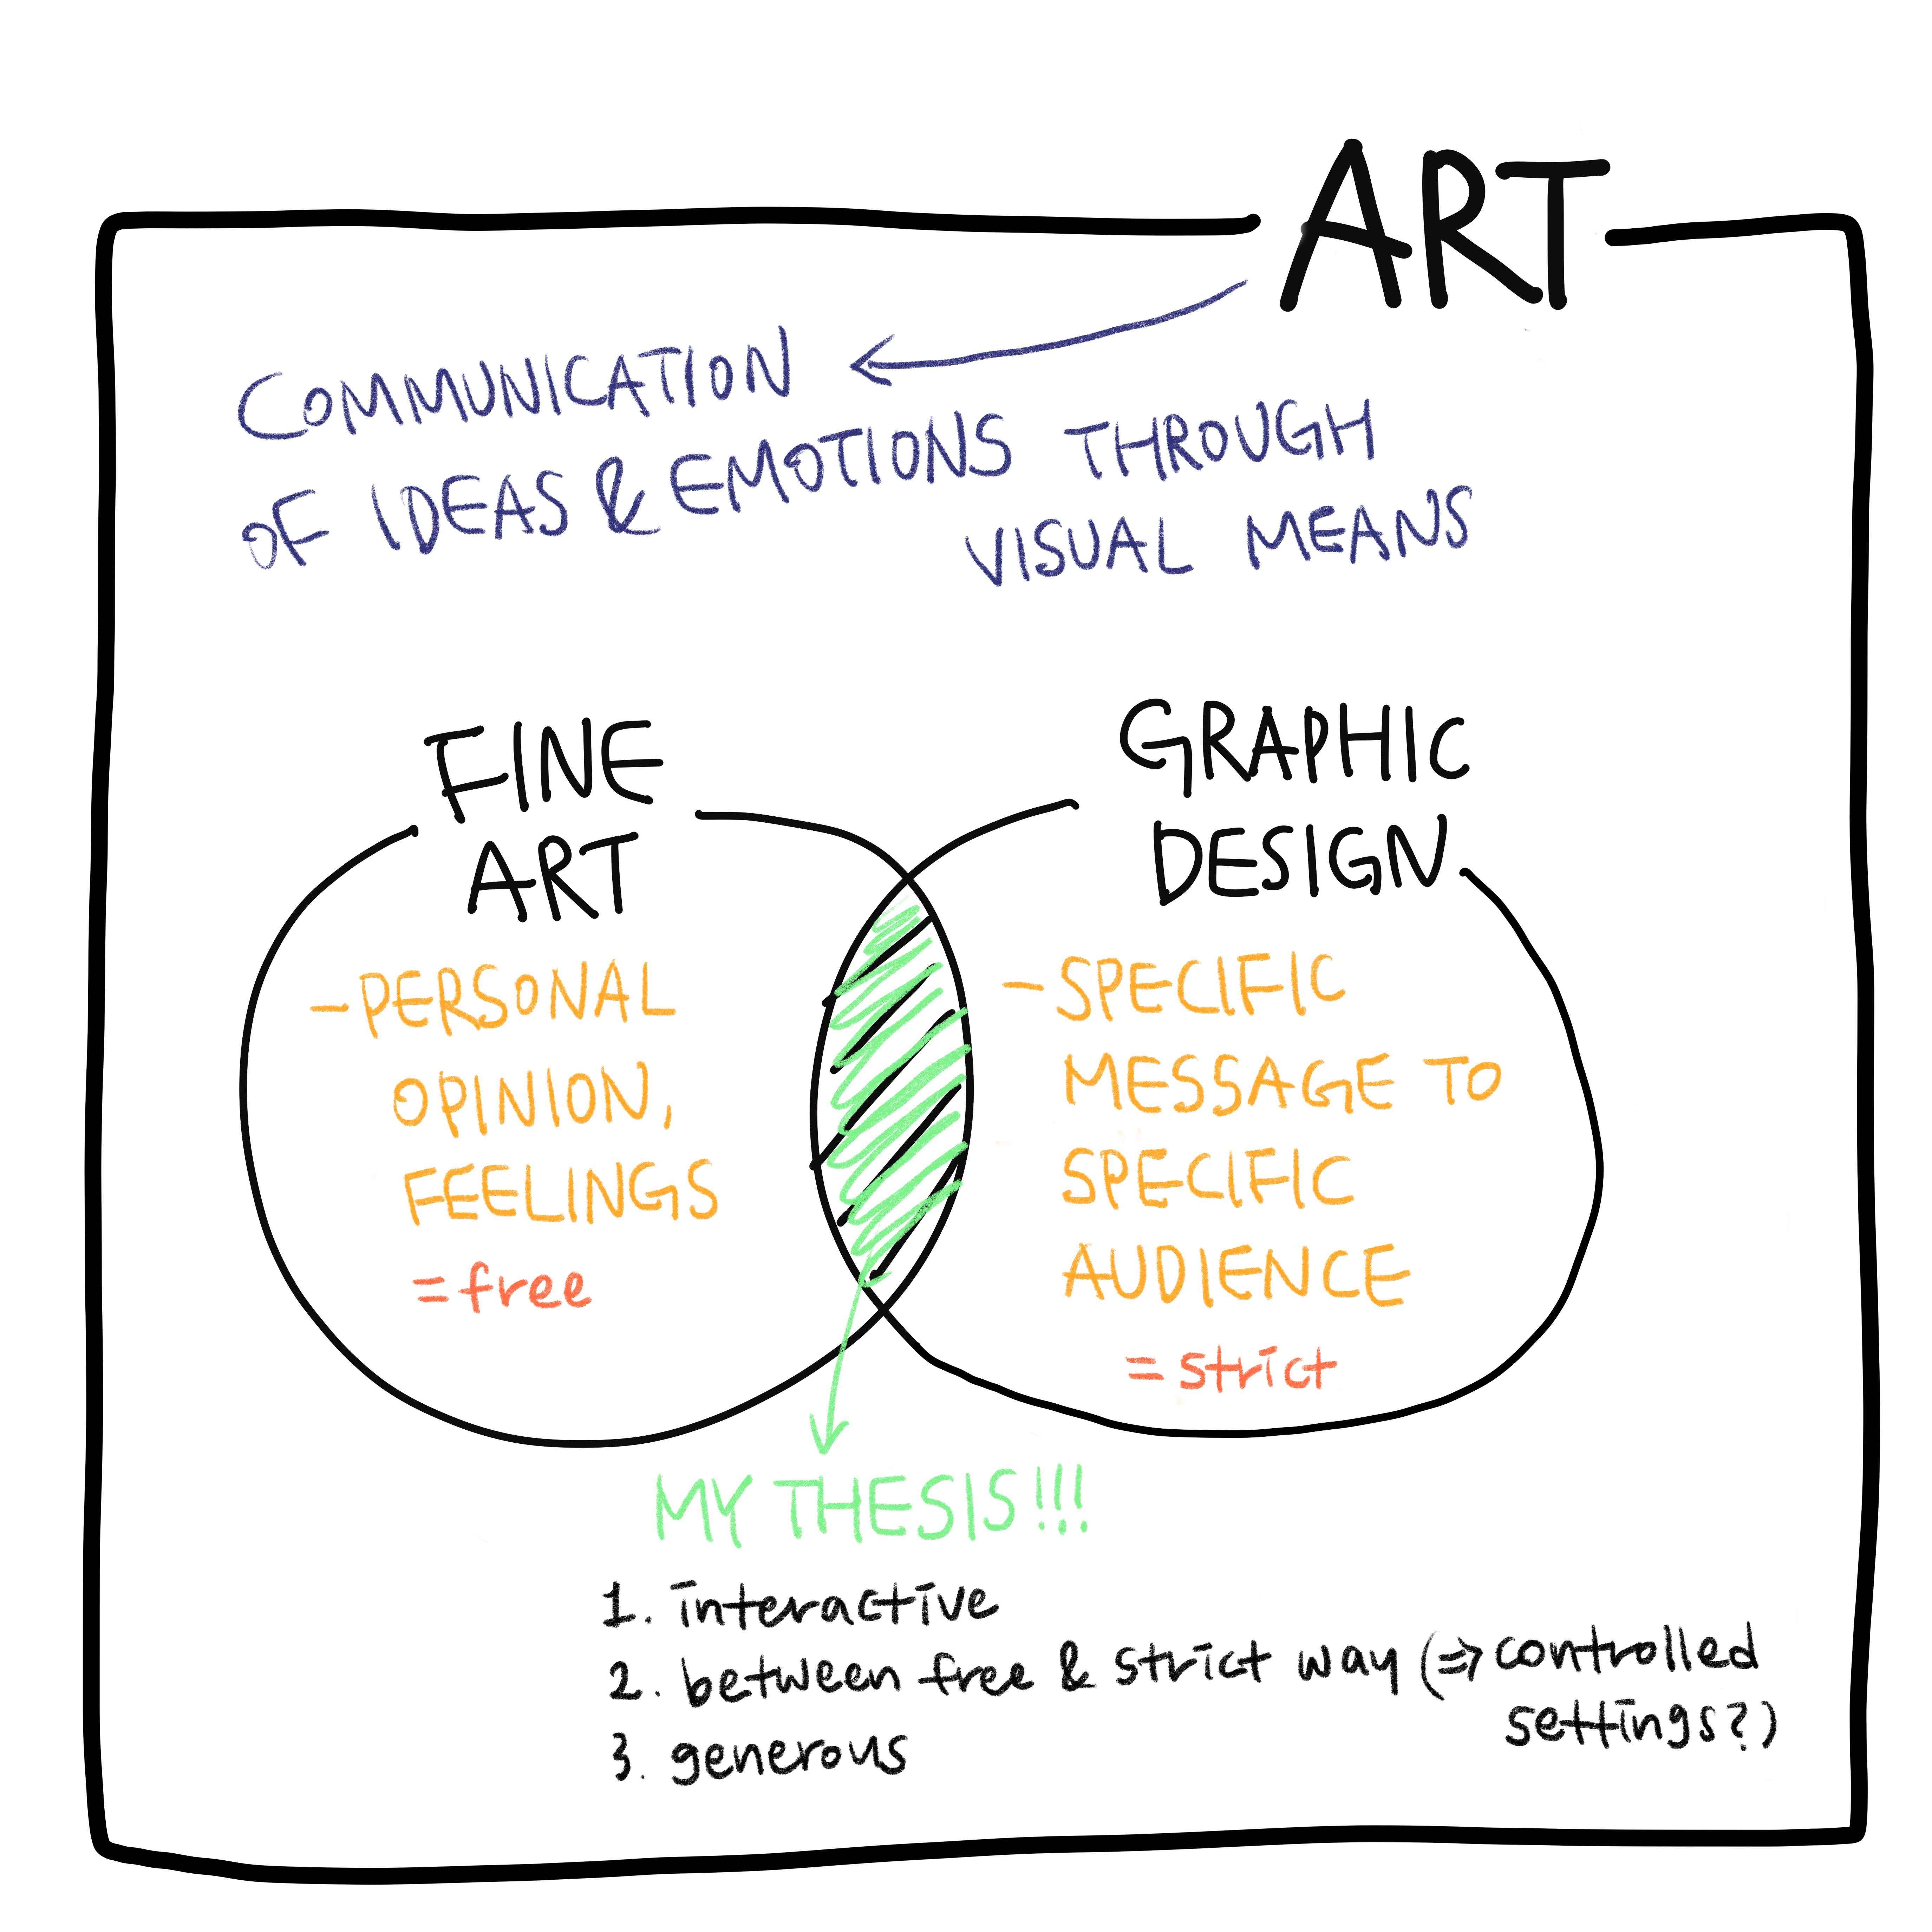 ART
COMMUNICATION
OF IDEAS & EMOTIONS THROUGH
VISUAL MEANS
FINE
ART
-PERSONAL
OPINION,
FEELINGS
=free
GRAPHIC
DESIGN
-SPECIFIC
MESSAGE TO
SPECIFIC
AUDIENCE
=strict
MY THESIS!!!
1. interactive
2. between free & strict way (=> controlled
settings?)
3. generous